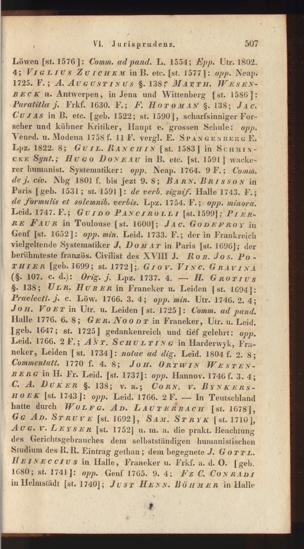 VI. Jurisprudenz. 507
Löwen [st. 1576]: Comm. ad pand. L. 1554; Epp. Utr. 1802.
4; VIGLIUS ZUICHEM in B. etc. [st. 1577]: opp. Neap.
1725. F.; A. AUGUSTINUS §. 138; MATTH. WESEN-
BECK a. Antwerpen, in Jena und Wittenberg [st. 1586]:
Paratitla j. Frkf. 1630. F.; F. HOTOMAN §. 138; JAC.
CUIAS in B. etc. [geb. 1522; st. 1590], scharfsinniger For-
scher und kühner Kritiker, Haupt e. grossen Schule: opp.
Vened. u. Modena 1758 f. 11 F. vergl. E. SPANGENBERG E.
Lpz. 1822. 8; GUIL. RANCHIN [st. 1583] in
; HUGO DONEAU in B. etc. [st. 1591] wacke-
rer humanist. Systematiker: opp. Neap. 1764. 9 F.; Comm.
de j. civ. Nbg 1801 f. bis jezt 9. 8; BARN. BRISSON in
Paris [geb. 1531; st. 1591]: de verb. signif. Halle 1743. F.;
de formulis et solemnib. verbis. Lpz. 1754. F.; opp. minora.
Leid. 1747. F.; GUIDO PANCIROLLI [st. 1599]; PIER-
RE FAUR in Toulouse [st. 1600]; JAC. GODEFROY in
Genf [st. 1652]: opp. min. Leid. 1733. F.; der in Frankreich
vielgeltende Systematiker J. DOMAT in Paris [st. 1696]; der
berühmteste französ. Civilist des XVIII J. ROB. JOS. PO-
THIER [geb. 1699; st. 1772]; GIOV. VINC. GRAVINA
(§. 107. c. d.): Orig. j. Lpz. 1737. 4. — H. GROTIUS
§. 138; ULR. HUBER in Franeker u. Leiden [st. 1694]:
Praelectt. j. c. Löw. 1766. 3. 4; opp. min. Utr. 1746. 2. 4;
JOH. VOET in Utr. u. Leiden [st. 1725]: Comm. ad pand.
Halle 1776. 6. 8; GER. NOODT in Franeker, Utr. u. Leid.
[geb. 1647; st. 1725] gedankenreich und tief gelehrt: opp.
Leid. 1766. 2 F.; ANT. SCHULTING in Harderwyk, Fra-
neker, Leiden [st. 1734]: notae ad dig. Leid. 1804 f. 2. 8;
Commentatt. 1770 f. 4. 8; JOH. ORTWIN WESTEN-
BERG in H. Fr. Leid. [st. 1737]: opp. Hannov. 1746 f. 3. 4;
C. A. DUKER §. 138; v. a.; CORN. v. BYNKERS-
HOEK [st. 1743]: opp. Leid. 1766. 2 F. — In Teutschland
hatte durch WOLFG. AD. LAUTERBACH [st. 1678],
GG AD. STRUVE [st. 1692], SAM. STRYK [st. 1710],
AUG. v. LEYSER [st. 1752] u. m. a. die prakt. Beachtung
des Gerichtsgebrauches dem selbstständigen humanistischen
Studium des R. R. Eintrag gethan; dem begegnete J. GOTTL.
HEINECCIUS in Halle, Franeker u. Frkf. a. d. O. [geb.
1680; st. 1741]: opp. Genf 1765. 9. 4; FZ C. CONRADI
in Helmstädt [st. 1740]; JUST HENN. BÖHMER in Halle